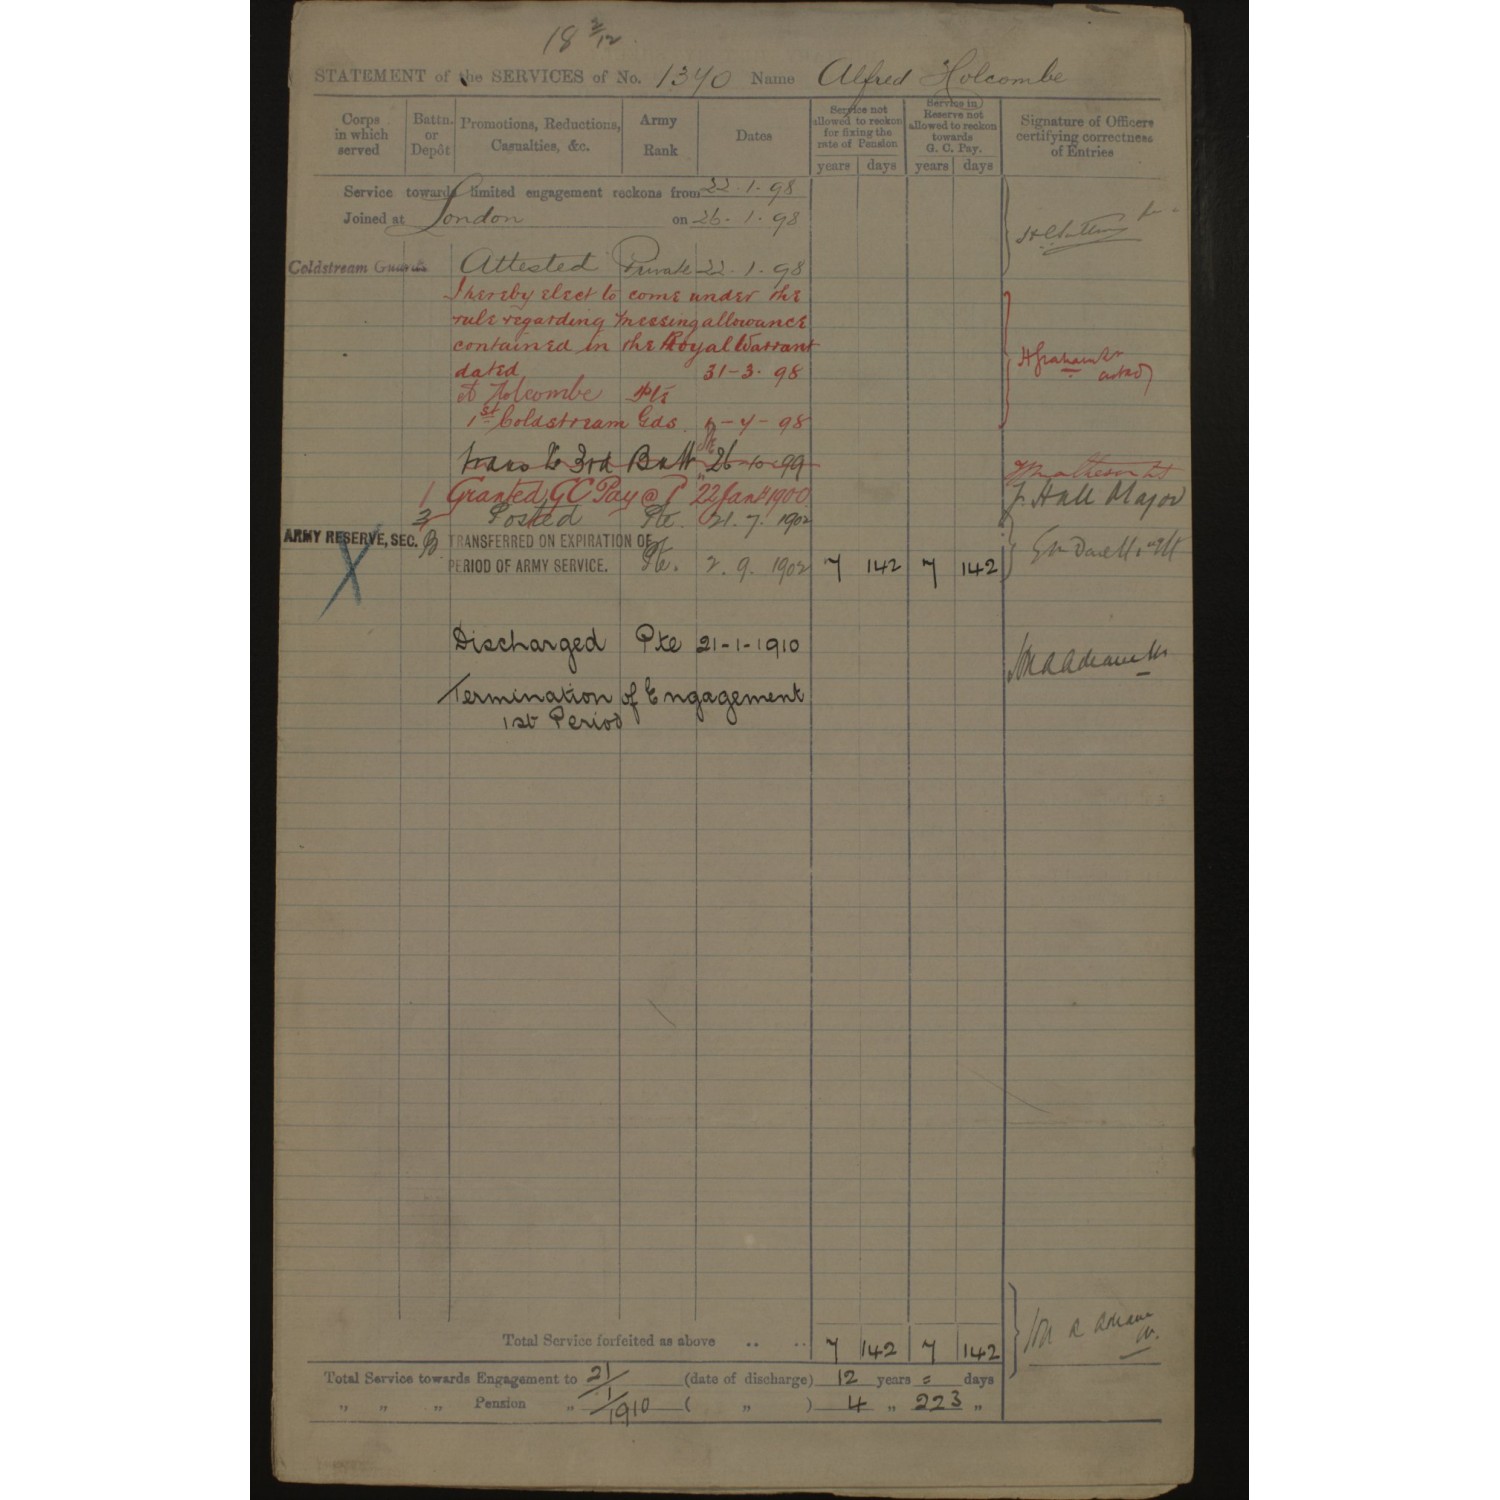 18 2/12
STATEMENT of the SERVICES of No. 1340 Name Alfred Holcombe
Corps in which served
Battn. or Depôt
Promotions, Reductions, Casualties, &c.
Army Rank
Dates
Service not allowed to reckon for fixing the rate of Pension
years days
Service in Reserve not allowed to reckon towards G. C. Pay.
years days
Signature of Officers certifying correctness of Entries
Service towards limited engagement reckons from 22.1.98
Joined at London on 26.1.98
Coldstream Guards Attested Private 22.1.98
I hereby elect to come under the
rule regarding messing allowance
contained in the Royal Warrant
dated 31-3-98
A Holcombe Pte
1st Coldstream Gds -4-98
trans to 3rd Batt 26-10-99
1 Granted GC Pay @ 1d 22 Jany 1900
F. Hull Major
3 Posted Pte. 21.7.1902
ARMY RESERVE, SEC. B TRANSFERRED ON EXPIRATION OF
PERIOD OF ARMY SERVICE. Pte. 2.9.1902 7 142 7 142
Discharged Pte 21-1-1910
Termination of Engagement
1st Period
Total Service forfeited as above .. .. 7 142 7 142
Total Service towards Engagement to 21/1/1910 (date of discharge) 12 years = days
" " " Pension " ( " ) 4 " 223 "